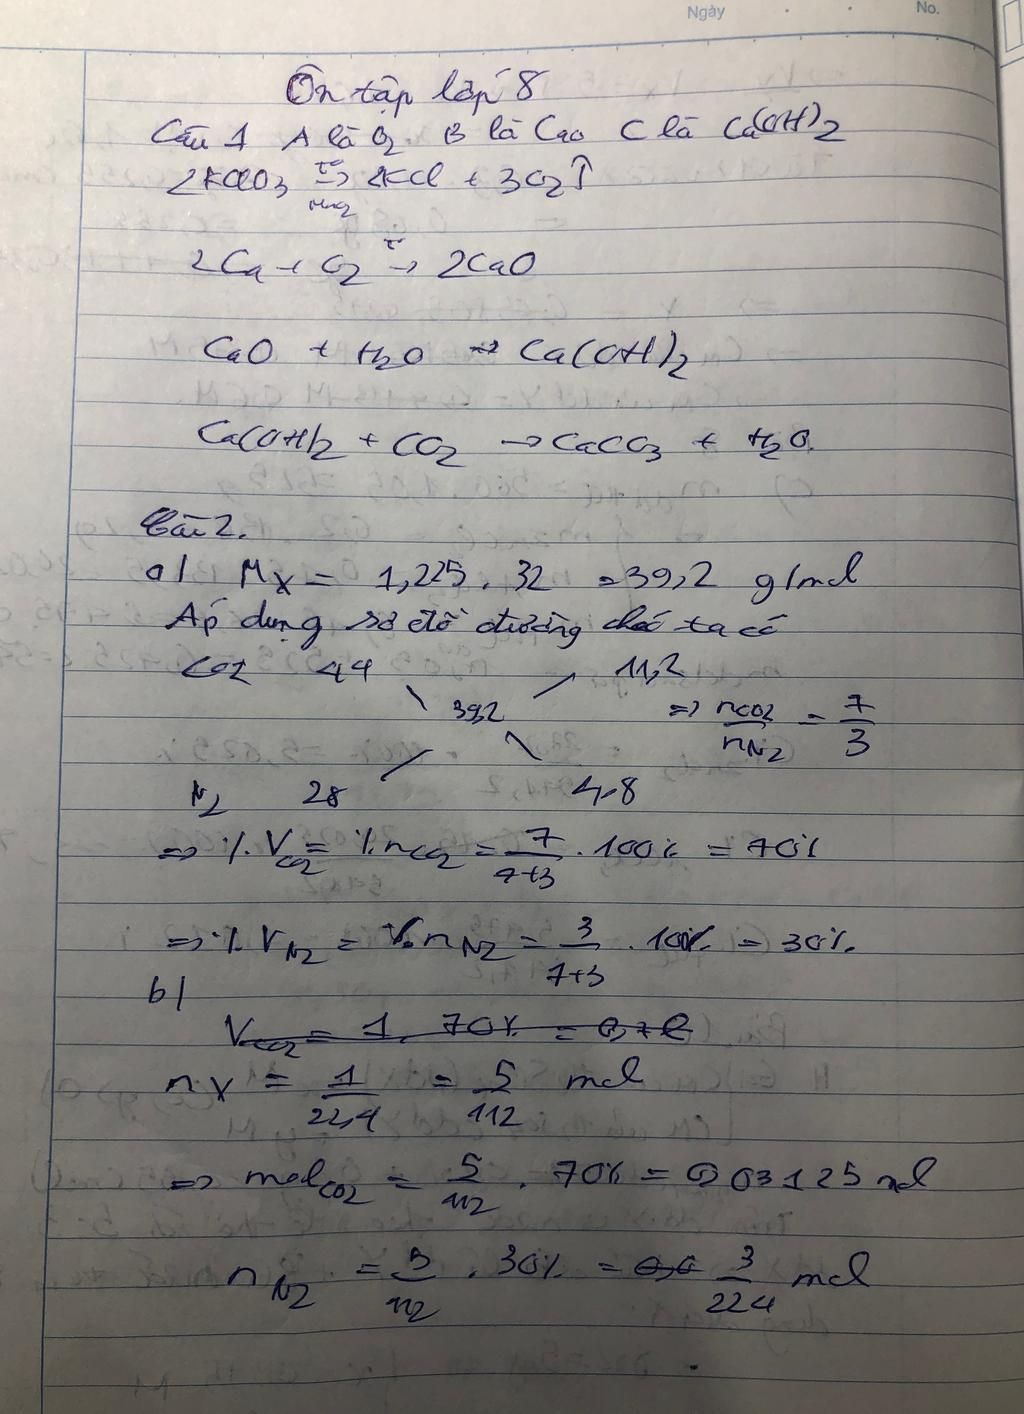 Ngày
No.
Ôn tập lớp 8
Câu 1 A là O2 B là CaO C là Ca(OH)2
2KClO3 t° → MnO2 2KCl + 3O2↑
2Ca + O2 t° → 2CaO
CaO + H2O → Ca(OH)2
Ca(OH)2 + CO2 → CaCO3 + H2O.
Câu 2.
a/ MX = 1,225 . 32 = 39,2 g/mol
Áp dụng sơ đồ đường chéo ta có
CO2 44 11,2
39,2 => nCO2/nN2 = 7/3
N2 28 4,8
=> %VCO2 = %nCO2 = 7/7+3 . 100% = 70%
=> %VN2 = %nN2 = 3/7+3 . 100% = 30%
b/
VCO2 = 1. 70% = 0,7l
nX = 1/22,4 = 5/112 mol
=> molCO2 = 5/112 . 70% = 0,03125 mol
nN2 = 5/112 . 30% = 3/224 mol